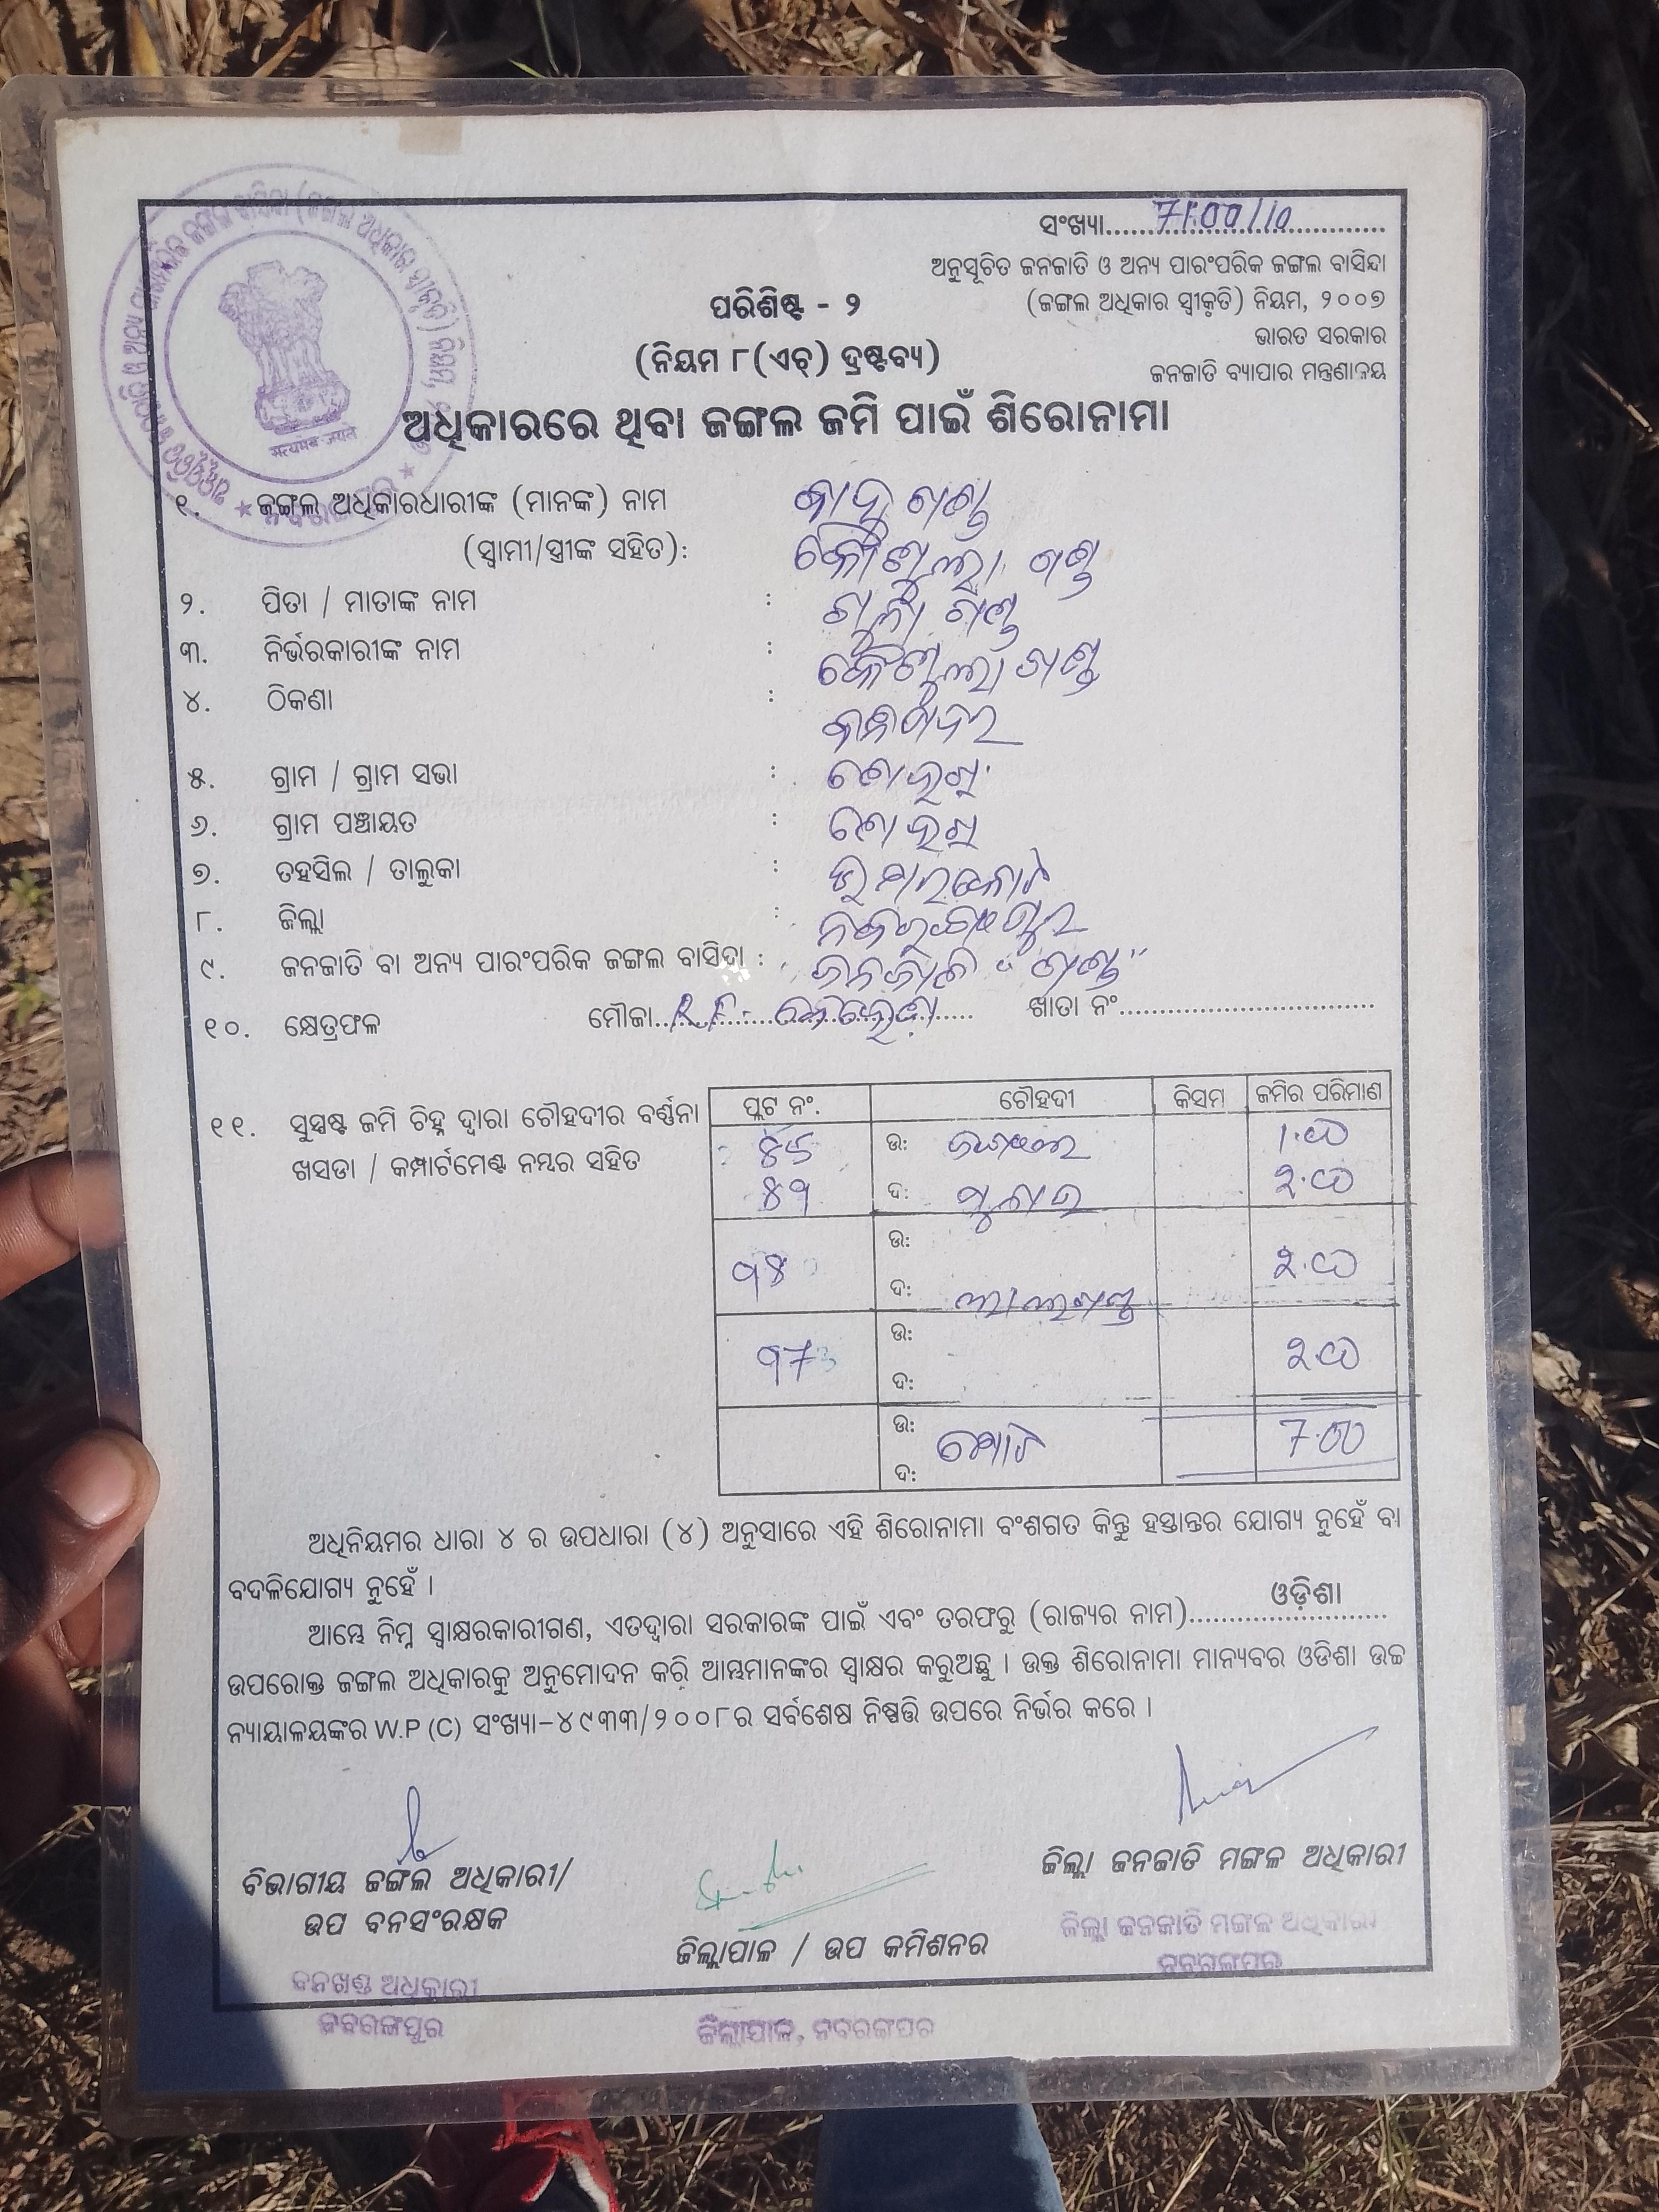 ସଂଖ୍ୟା............7100/10............
ଅନୁସୂଚିତ ଜନଜାତି ଓ ଅନ୍ୟ ପାରଂପରିକ ଜଙ୍ଗଲ ବାସିନ୍ଦା
(ଜଙ୍ଗଲ ଅଧିକାର ସ୍ୱୀକୃତି) ନିୟମ, ୨୦୦୭
ଭାରତ ସରକାର
ଜନଜାତି ବ୍ୟାପାର ମନ୍ତ୍ରଣାଳୟ
ପରିଶିଷ୍ଟ - ୨
(ନିୟମ ୮(ଏଚ୍) ଦ୍ରଷ୍ଟବ୍ୟ)
ଅଧିକାରରେ ଥିବା ଜଙ୍ଗଲ ଜମି ପାଇଁ ଶିରୋନାମା
सत्यमेव जयते
୧. ଜଙ୍ଗଲ ଅଧିକାରଧାରୀଙ୍କ (ମାନଙ୍କ) ନାମ ଗଣ୍ଡ
(ସ୍ୱାମୀ/ସ୍ତ୍ରୀଙ୍କ ସହିତ): ଗଣ୍ଡ
୨. ପିତା / ମାତାଙ୍କ ନାମ : ଗଣ୍ଡ
୩. ନିର୍ଭରକାରୀଙ୍କ ନାମ : ଗଣ୍ଡ
୪. ଠିକଣା :
୫. ଗ୍ରାମ / ଗ୍ରାମ ସଭା :
୬. ଗ୍ରାମ ପଞ୍ଚାୟତ :
୭. ତହସିଲ / ତାଲୁକା :
୮. ଜିଲ୍ଲା : ନବରଙ୍ଗପୁର
୯. ଜନଜାତି ବା ଅନ୍ୟ ପାରଂପରିକ ଜଙ୍ଗଲ ବାସିନ୍ଦା : ଜନଜାତି "ଗଣ୍ଡ"
୧୦. କ୍ଷେତ୍ରଫଳ ମୌଜା...R.F............ ଖାତା ନଂ................................
୧୧. ସୁସ୍ପଷ୍ଟ ଜମି ଚିହ୍ନ ଦ୍ୱାରା ଚୌହଦୀର ବର୍ଣ୍ଣନା
ଖସଡା / କମ୍ପାର୍ଟମେଣ୍ଟ ନମ୍ବର ସହିତ
ପ୍ଲଟ ନଂ. ଚୌହଦୀ କିସମ ଜମିର ପରିମାଣ
ଉ: 1.00
ଦ: ୨.00
ଉ:
ଦ: ୨.00
ଉ:
ଦ: ୨.00
ଉ: ମୋଟ 7.00
ଦ:
ଅଧିନିୟମର ଧାରା ୪ ର ଉପଧାରା (୪) ଅନୁସାରେ ଏହି ଶିରୋନାମା ବଂଶଗତ କିନ୍ତୁ ହସ୍ତାନ୍ତର ଯୋଗ୍ୟ ନୁହେଁ ବା
ବଦଳିଯୋଗ୍ୟ ନୁହେଁ ।
ଆମ୍ଭେ ନିମ୍ନ ସ୍ୱାକ୍ଷରକାରୀଗଣ, ଏତଦ୍ଦ୍ୱାରା ସରକାରଙ୍କ ପାଇଁ ଏବଂ ତରଫରୁ (ରାଜ୍ୟର ନାମ)........ଓଡ଼ିଶା........
ଉପରୋକ୍ତ ଜଙ୍ଗଲ ଅଧିକାରକୁ ଅନୁମୋଦନ କରି ଆମ୍ଭମାନଙ୍କର ସ୍ୱାକ୍ଷର କରୁଅଛୁ । ଉକ୍ତ ଶିରୋନାମା ମାନ୍ୟବର ଓଡିଶା ଉଚ୍ଚ
ନ୍ୟାୟାଳୟଙ୍କର W.P (C) ସଂଖ୍ୟା-୪୯୩୩/୨୦୦୮ର ସର୍ବଶେଷ ନିଷ୍ପତ୍ତି ଉପରେ ନିର୍ଭର କରେ ।
ବିଭାଗୀୟ ଜଙ୍ଗଲ ଅଧିକାରୀ/
ଉପ ବନସଂରକ୍ଷକ
ବନଖଣ୍ଡ ଅଧିକାରୀ
ନବରଙ୍ଗପୁର
ଜିଲ୍ଲାପାଳ / ଉପ କମିଶନର
ଜିଲ୍ଲାପାଳ, ନବରଙ୍ଗପୁର
ଜିଲ୍ଲା ଜନଜାତି ମଙ୍ଗଳ ଅଧିକାରୀ
ଜିଲ୍ଲା ଜନଜାତି ମଙ୍ଗଳ ଅଧିକାରୀ
ନବରଙ୍ଗପୁର